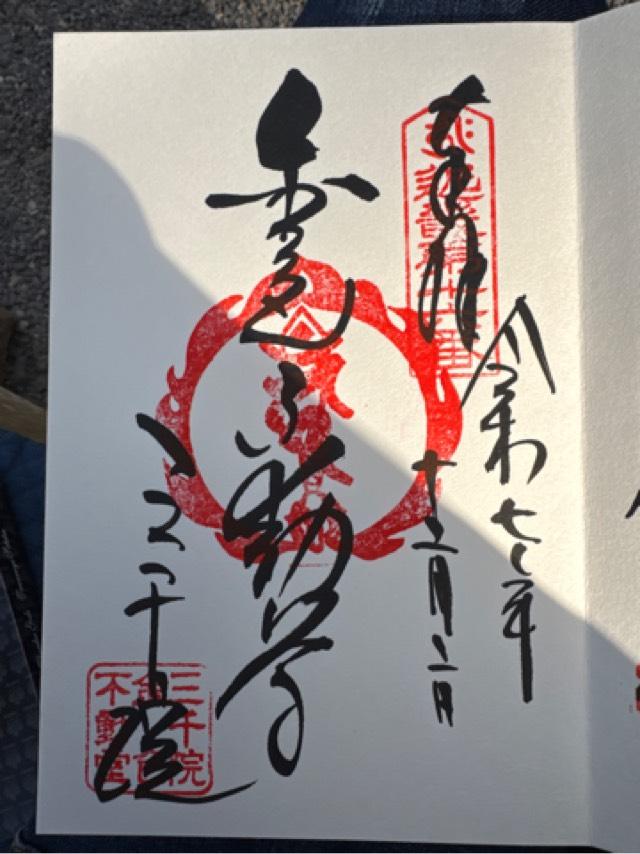 奉拝
令和七年
十二月二日
金色不動尊
三千院
三千院
金色
不動堂